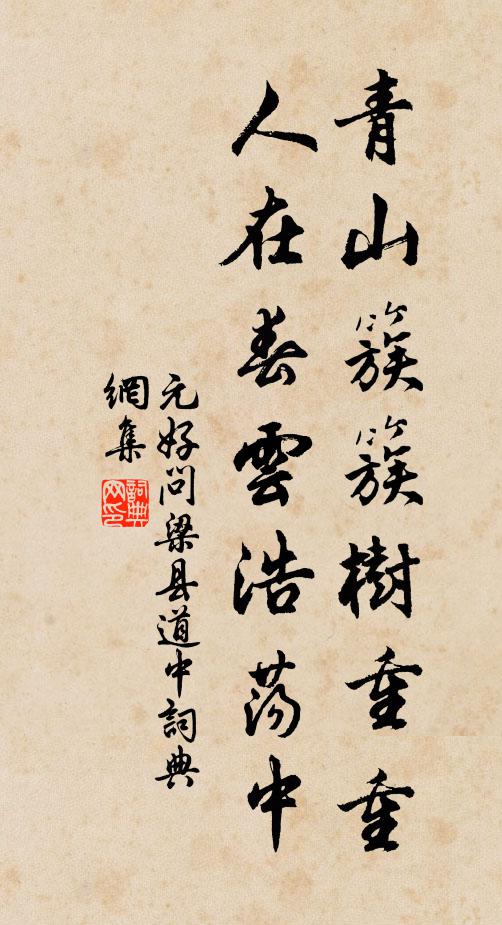 青山簇簇樹重重
人在春雲浩荡中
元好问梁县道中詞典
網集
詞典
网印